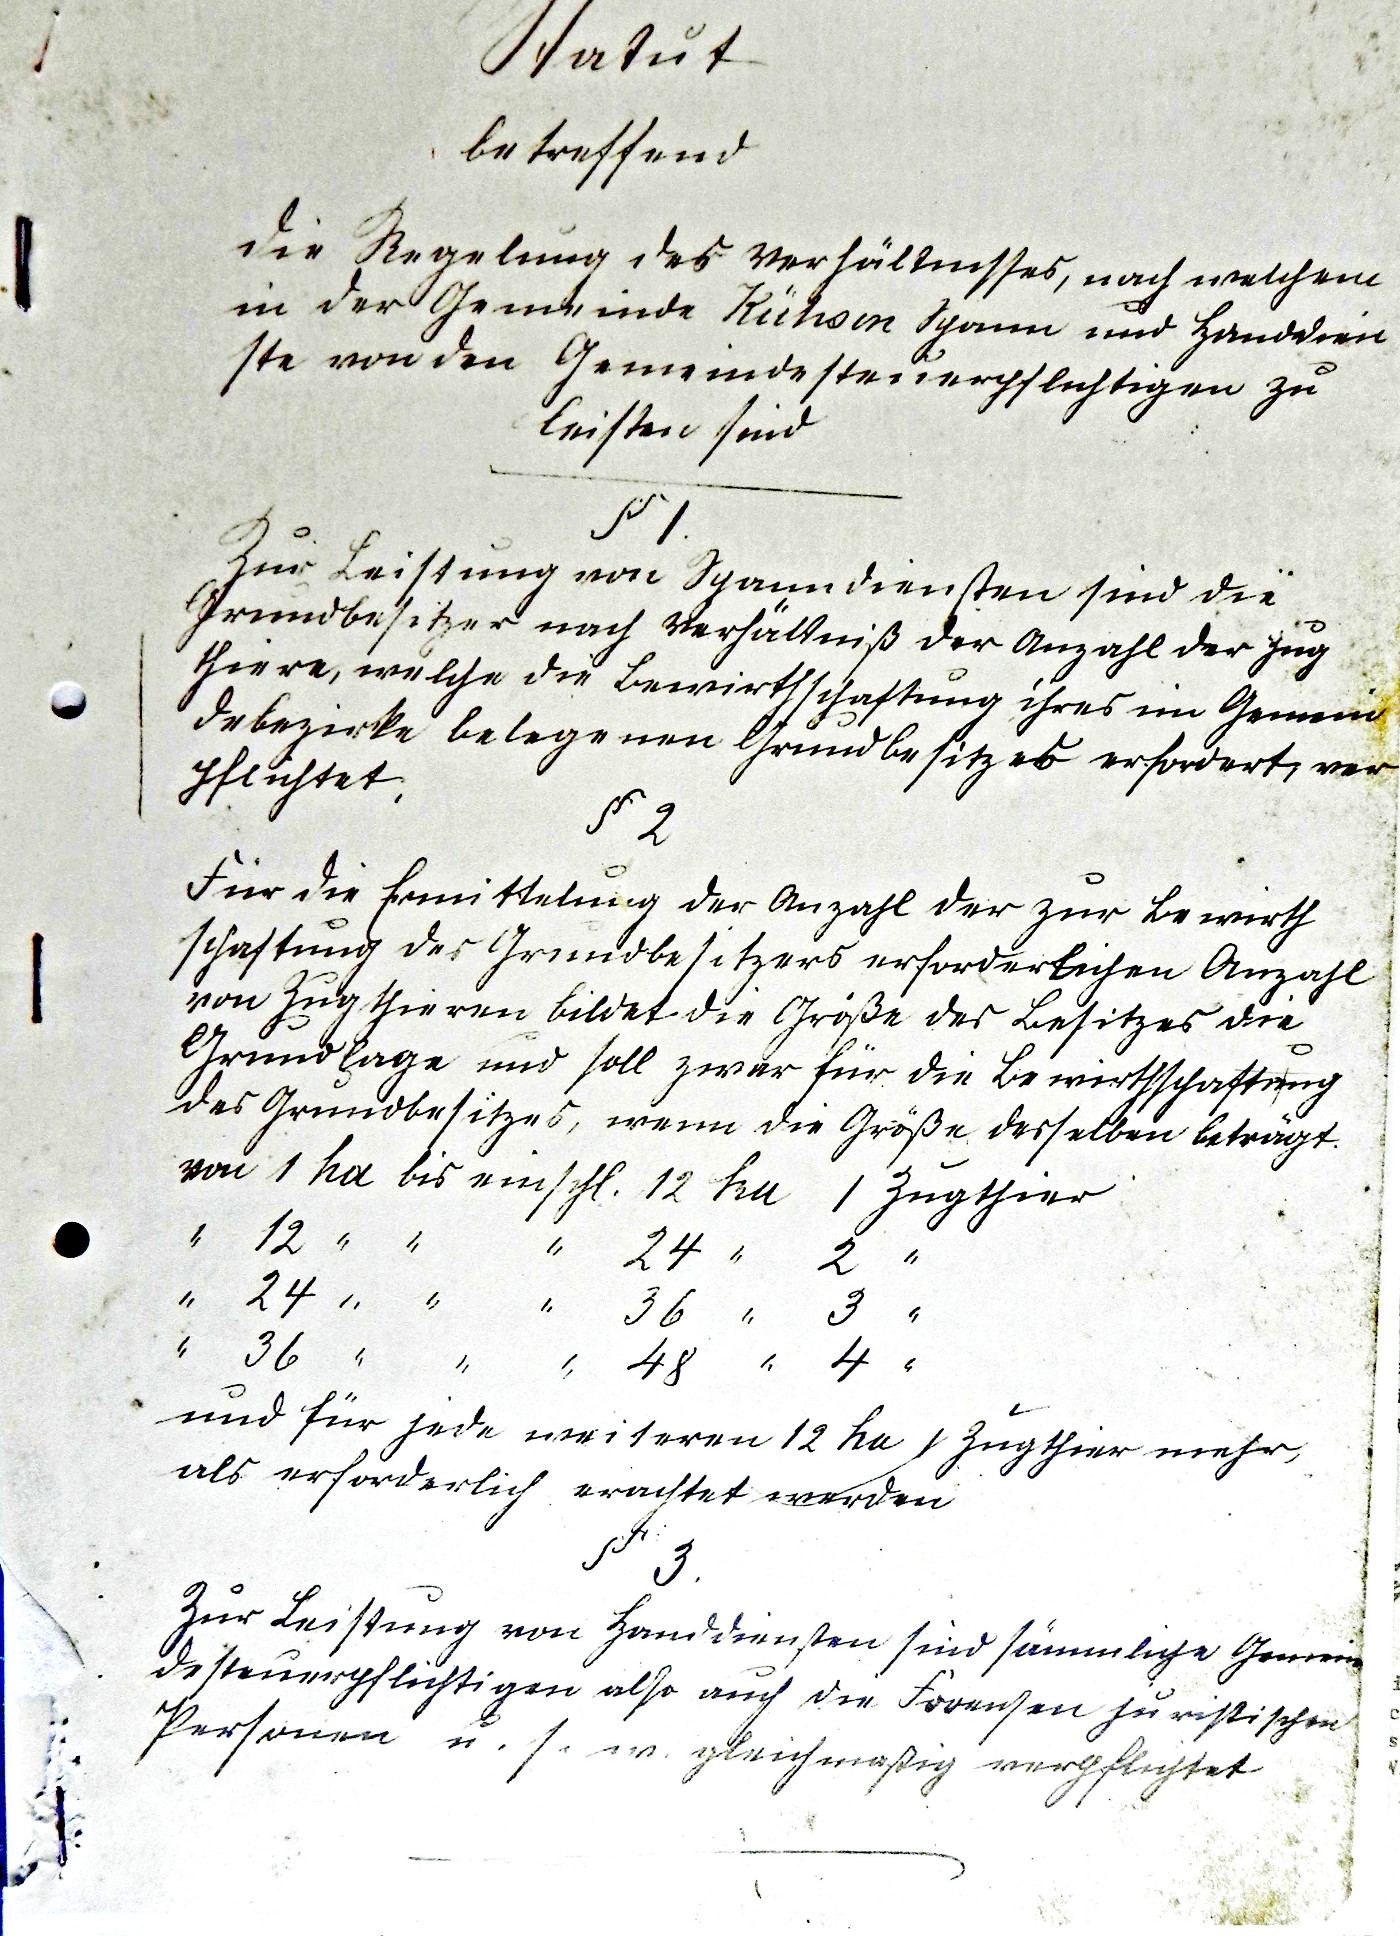 Statut
betreffend
die Regelung des Verhältnisses, nach welchem
in der Gemeinde Kühsen Spann und Handdien
ste von den Gemeindesteuerpflichtigen zu
leisten sind
§ 1.
Zur Leistung von Spanndiensten sind die
Grundbesitzer nach Verhältniß der Anzahl der Zug
thiere, welche die Bewirthschaftung ihres im Gemein
debezirke belegenen Grundbesitzes erfordert, ver
pflichtet.
§ 2
Für die Ermittelung der Anzahl der zur Bewirth
schaftung des Grundbesitzers erforderlichen Anzahl
von Zugthieren bildet die Größe des Besitzes die
Grundlage und soll zwar für die Bewirthschaftung
des Grundbesitzes, wenn die Größe desselben beträgt.
von 1 ha bis einschl. 12 ha 1 Zugthier
" 12 " " " 24 " 2 "
" 24 " " " 36 " 3 "
" 36 " " " 48 " 4 "
und für jede weiteren 12 ha 1 Zugthier mehr,
als erforderlich erachtet werden
§ 3.
Zur Leistung von Handdiensten sind sämmliche Gemein
desteuerpflichtigen also auch die Forensen juristischen
Personen u. s. w. gleichmäßig verpflichtet